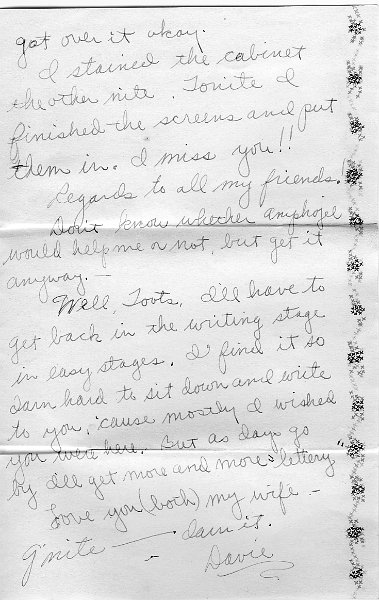 got over it okay.
I stained the cabinet
the other nite. Tonite I
finished the screens and put
them in. I miss you!!
Regards to all my friends.
Don't know whether amphojel
would help me or not, but get it
anyway.
Well, Toots, I'll have to
get back in the writing stage
in easy stages. I find it so
darn hard to sit down and write
to you, 'cause mostly I wished
you were here. But as days go
by I'll get more and more "lettery"
Love you (both) my wife -
darn it.
G'nite — - Davie